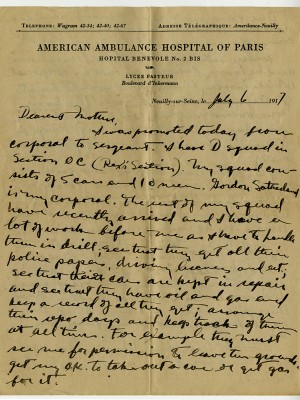 TELEPHONE: Wagram 42-34; 42-40; 42-67 ADRESSE TÉLÉGRAPHIQUE: Amerilance-Neuilly
AMERICAN AMBULANCE HOSPITAL OF PARIS
HOPITAL BENEVOLE No. 2 BIS
LYCÉE PASTEUR
Boulevard d'Inkermann
Neuilly-sur-Seine, le July 6 1917
Dearest Mother,
I was promoted today from
corporal to sergeant. I have D squad in
Section OC (Rex's Section). My squad con-
sists of 5 cars and 10 men. Gordon Sutherland
is my corporal. The rest of my squad
have recently arrived and I have a
lot of work before me as I have to handle
them in drill, see that they get all their
police papers, driving licenses and etc,
see that their cars are kept in repair
and see that they have oil and gas and
keep a record of all they get; arrange
their repo days and keep track of them
at all times. For example they must
see me for permission to leave the grounds,
get my O.K. to take out a car or get gas
for it.